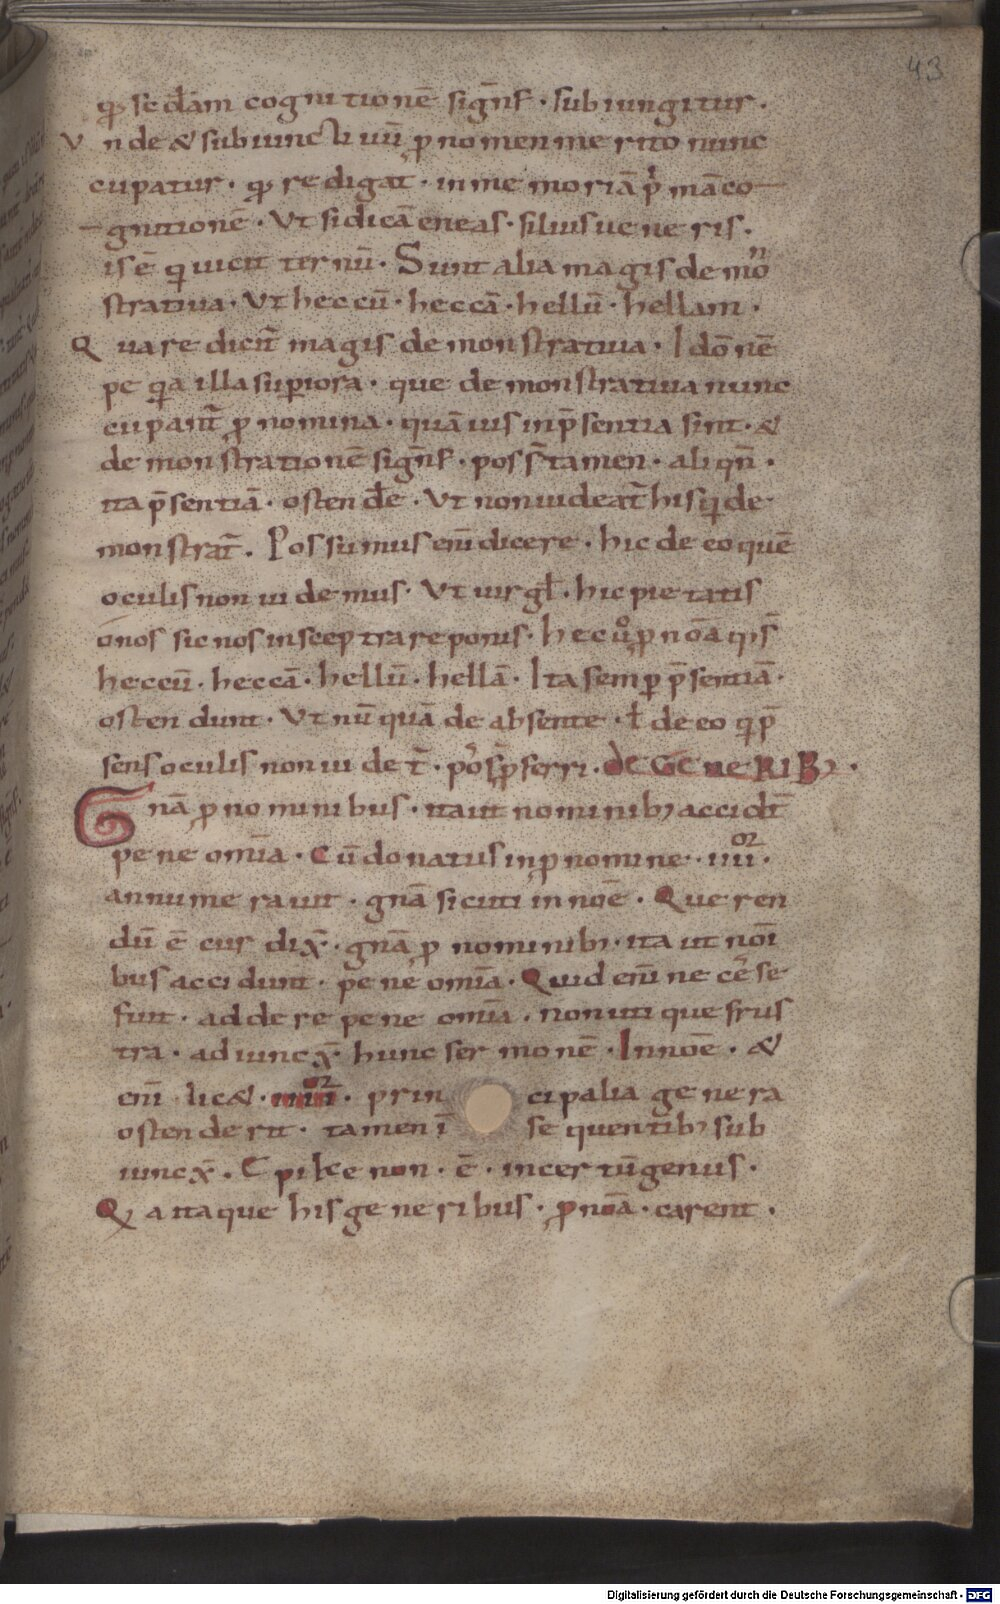 43
qđ sedam cognitionē signf̄. subiungitur.
Vnde & subiunctiuū ꝓnomen merito nunc
cupatur. qđ redigat. in memoriā pmā co
gnitionē. Vt si dicā eneas. filius ueneris.
is ē qui uicit turnū. Sunt alia magis demōn
stratiua. Vt heccū. heccā. hellū. hellam.
Quare dicunt̄ magis demonstratiua. Ido nē
pe qia illa superiora. que demonstratiua nunc
cupant̄ ꝓnomina. quāuis in p̄sentia sint. &
demonstrationē signf̄. poss̄ tamen. aliqn̄.
ita p̄sentiā. ostende. Vt non uideat̄ his qi de
monstrat̄. Possumus enī dicere. hic de eo quē
oculis non uidemus. Vt uirgł. hic pietatis
onos sic nos in sceptra reponis. hec uo ꝓnōa
heccū. heccā. hellū. hellā. Ita semp p̄sentiā.
ostendunt. Vt nūquā de absente. ł de eo qi p̄
sens oculis non uidet̄. poss ꝓferri. de GeneRIB;.
Gnā ꝓnominibus. ita ut nominib; accidt̄
pene omīa. Cū donatus in ꝓnomine. iiiior.
annumerauit. gnā sicuti in noē. Queren
dū ē cur dix̄. gnā ꝓnominib;. ita ut nōi
bus accidunt. pene omīa. Quid enī necēse
fuit. addere pene omīa. non utique frus
tra. adiunx̄ hunc sermonē. In noē. &
enī lic&. iiiior. principalia genera
ostenderit. tamen ī sequentib; sub
iunx̄. Epikenon. ē. incertū genus.
Qđ itaque his generibus. ꝓnōa. carent.
Digitalisierung gefördert durch die Deutsche Forschungsgemeinschaft - DFG